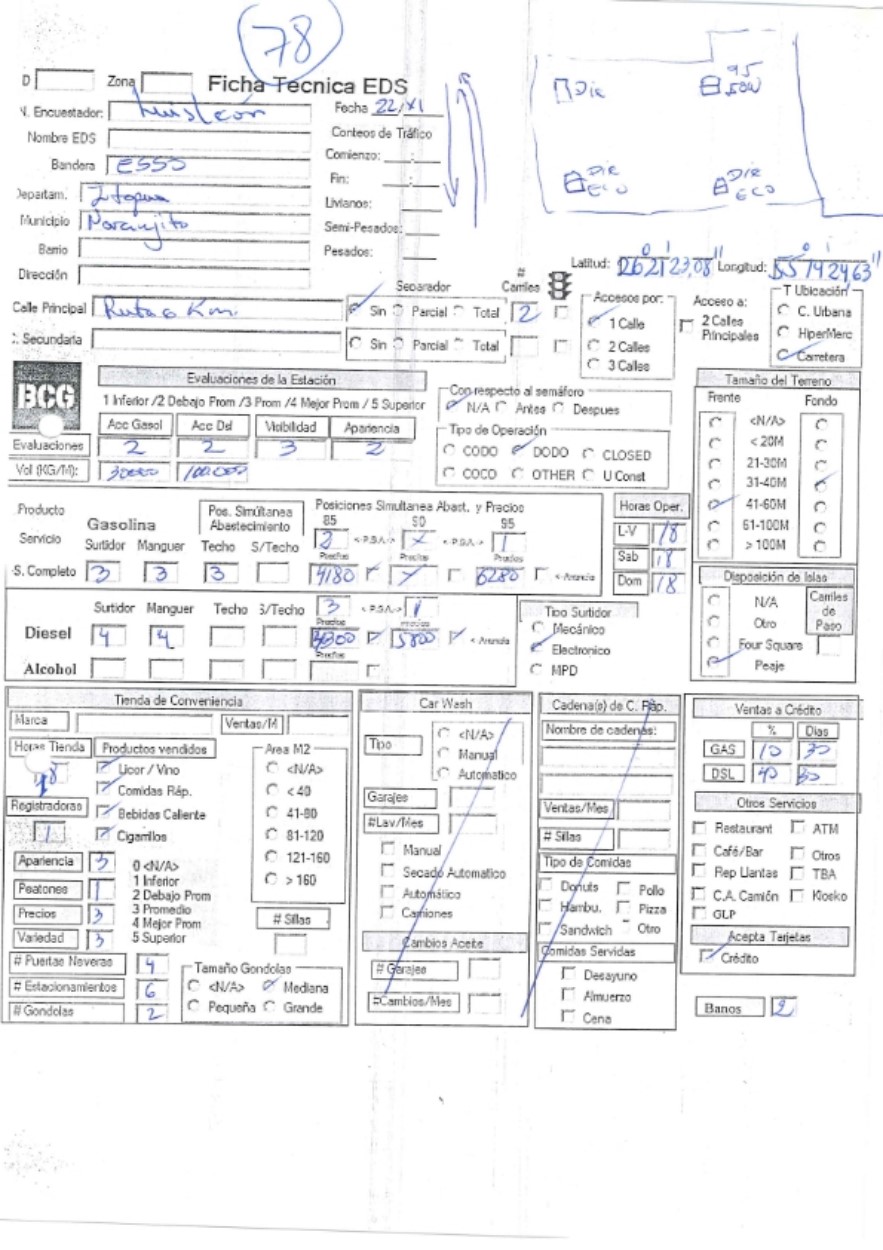 78
D Zona Ficha Tecnica EDS
N. Encuestador: Luis León Fecha 22/XI
Nombre EDS Conteos de Tráfico
Bandera ESSO Comienzo: __:__
Departam. Itapua Fin: __:__
Livianos:
Municipio Naranjito Semi-Pesados:
Barrio Pesados:
Dirección
Die 95 50U
DIE ECO DIE ECO
Latitud: 26°21'23,08" Longitud: 55°
Calle Principal Ruta 6 Km. Separador Sin Parcial Total # Carriles 2
C. Secundaria Sin Parcial Total
Accesos por: 1 Calle 2 Calles 3 Calles
Acceso a: 2 Calles Principales
T Ubicación C. Urbana HiperMerc Carretera
BCG
Evaluaciones de la Estación
1 Inferior /2 Debajo Prom /3 Prom /4 Mejor Prom / 5 Superior
Acc Gasol Acc Dsl Visibilidad Apariencia
Evaluaciones 2 2 3 2
Vol (KG/M): 30000 100.000
Con respecto al semáforo
N/A Antes Despues
Tipo de Operación
CODO DODO CLOSED
COCO OTHER U Const
Tamaño del Terreno
Frente Fondo
<N/A>
< 20M
21-30M
31-40M
41-60M
61-100M
> 100M
Producto Servicio Gasolina Pos. Simúltanea Abastecimiento
Posiciones Simultanea Abast. y Precios
85 90 95
Surtidor Manguer Techo S/Techo 2 < P.S.A.-> < P.S.A.-> 1
Precios Precios Precios
S. Completo 3 3 3 4180 6280 < Arancia
Horas Oper.
L-V 18
Sab 18
Dom 18
Surtidor Manguer Techo S/Techo 3 < P.S.A.-> 1
Precios Precios
Diesel 4 4 5800 < Arancia
Precios
Alcohol
Tipo Surtidor
Mecánico
Electronico
MPD
Disposición de Islas
N/A
Otro
Four Square
Peaje
Carriles de Paso
Tienda de Conveniencia
Marca Ventas/M
Horas Tienda 18 Productos vendidos
Licor / Vino
Comidas Ráp.
Bebidas Caliente
Cigarrillos
Registradoras 1
Area M2
<N/A>
< 40
41-80
81-120
121-160
> 160
Apariencia 3
Peatones 1
Precios 3
Variedad 3
0 <N/A>
1 Inferior
2 Debajo Prom
3 Promedio
4 Mejor Prom
5 Superior
# Sillas
# Puertas Neveras 4
# Estacionamientos 6
# Gondolas 2
Tamaño Gondolas
<N/A> Mediana
Pequeña Grande
Car Wash
Tipo <N/A> Manual Automatico
Garajes
#Lav/Mes
Manual
Secado Automatico
Automático
Camiones
Cambios Aceite
# Garajes
#Cambios/Mes
Cadena(s) de C. Ráp.
Nombre de cadenas:
Ventas/Mes
# Sillas
Tipo de Comidas
Donuts Pollo
Hambu. Pizza
Sandwich Otro
Comidas Servidas
Desayuno
Almuerzo
Cena
Ventas a Crédito
% Dias
GAS 10 30
DSL 40 30
Otros Servicios
Restaurant ATM
Café/Bar Otros
Rep Llantas TBA
C.A. Camión Kiosko
GLP
Acepta Tarjetas
Crédito
Banos 2